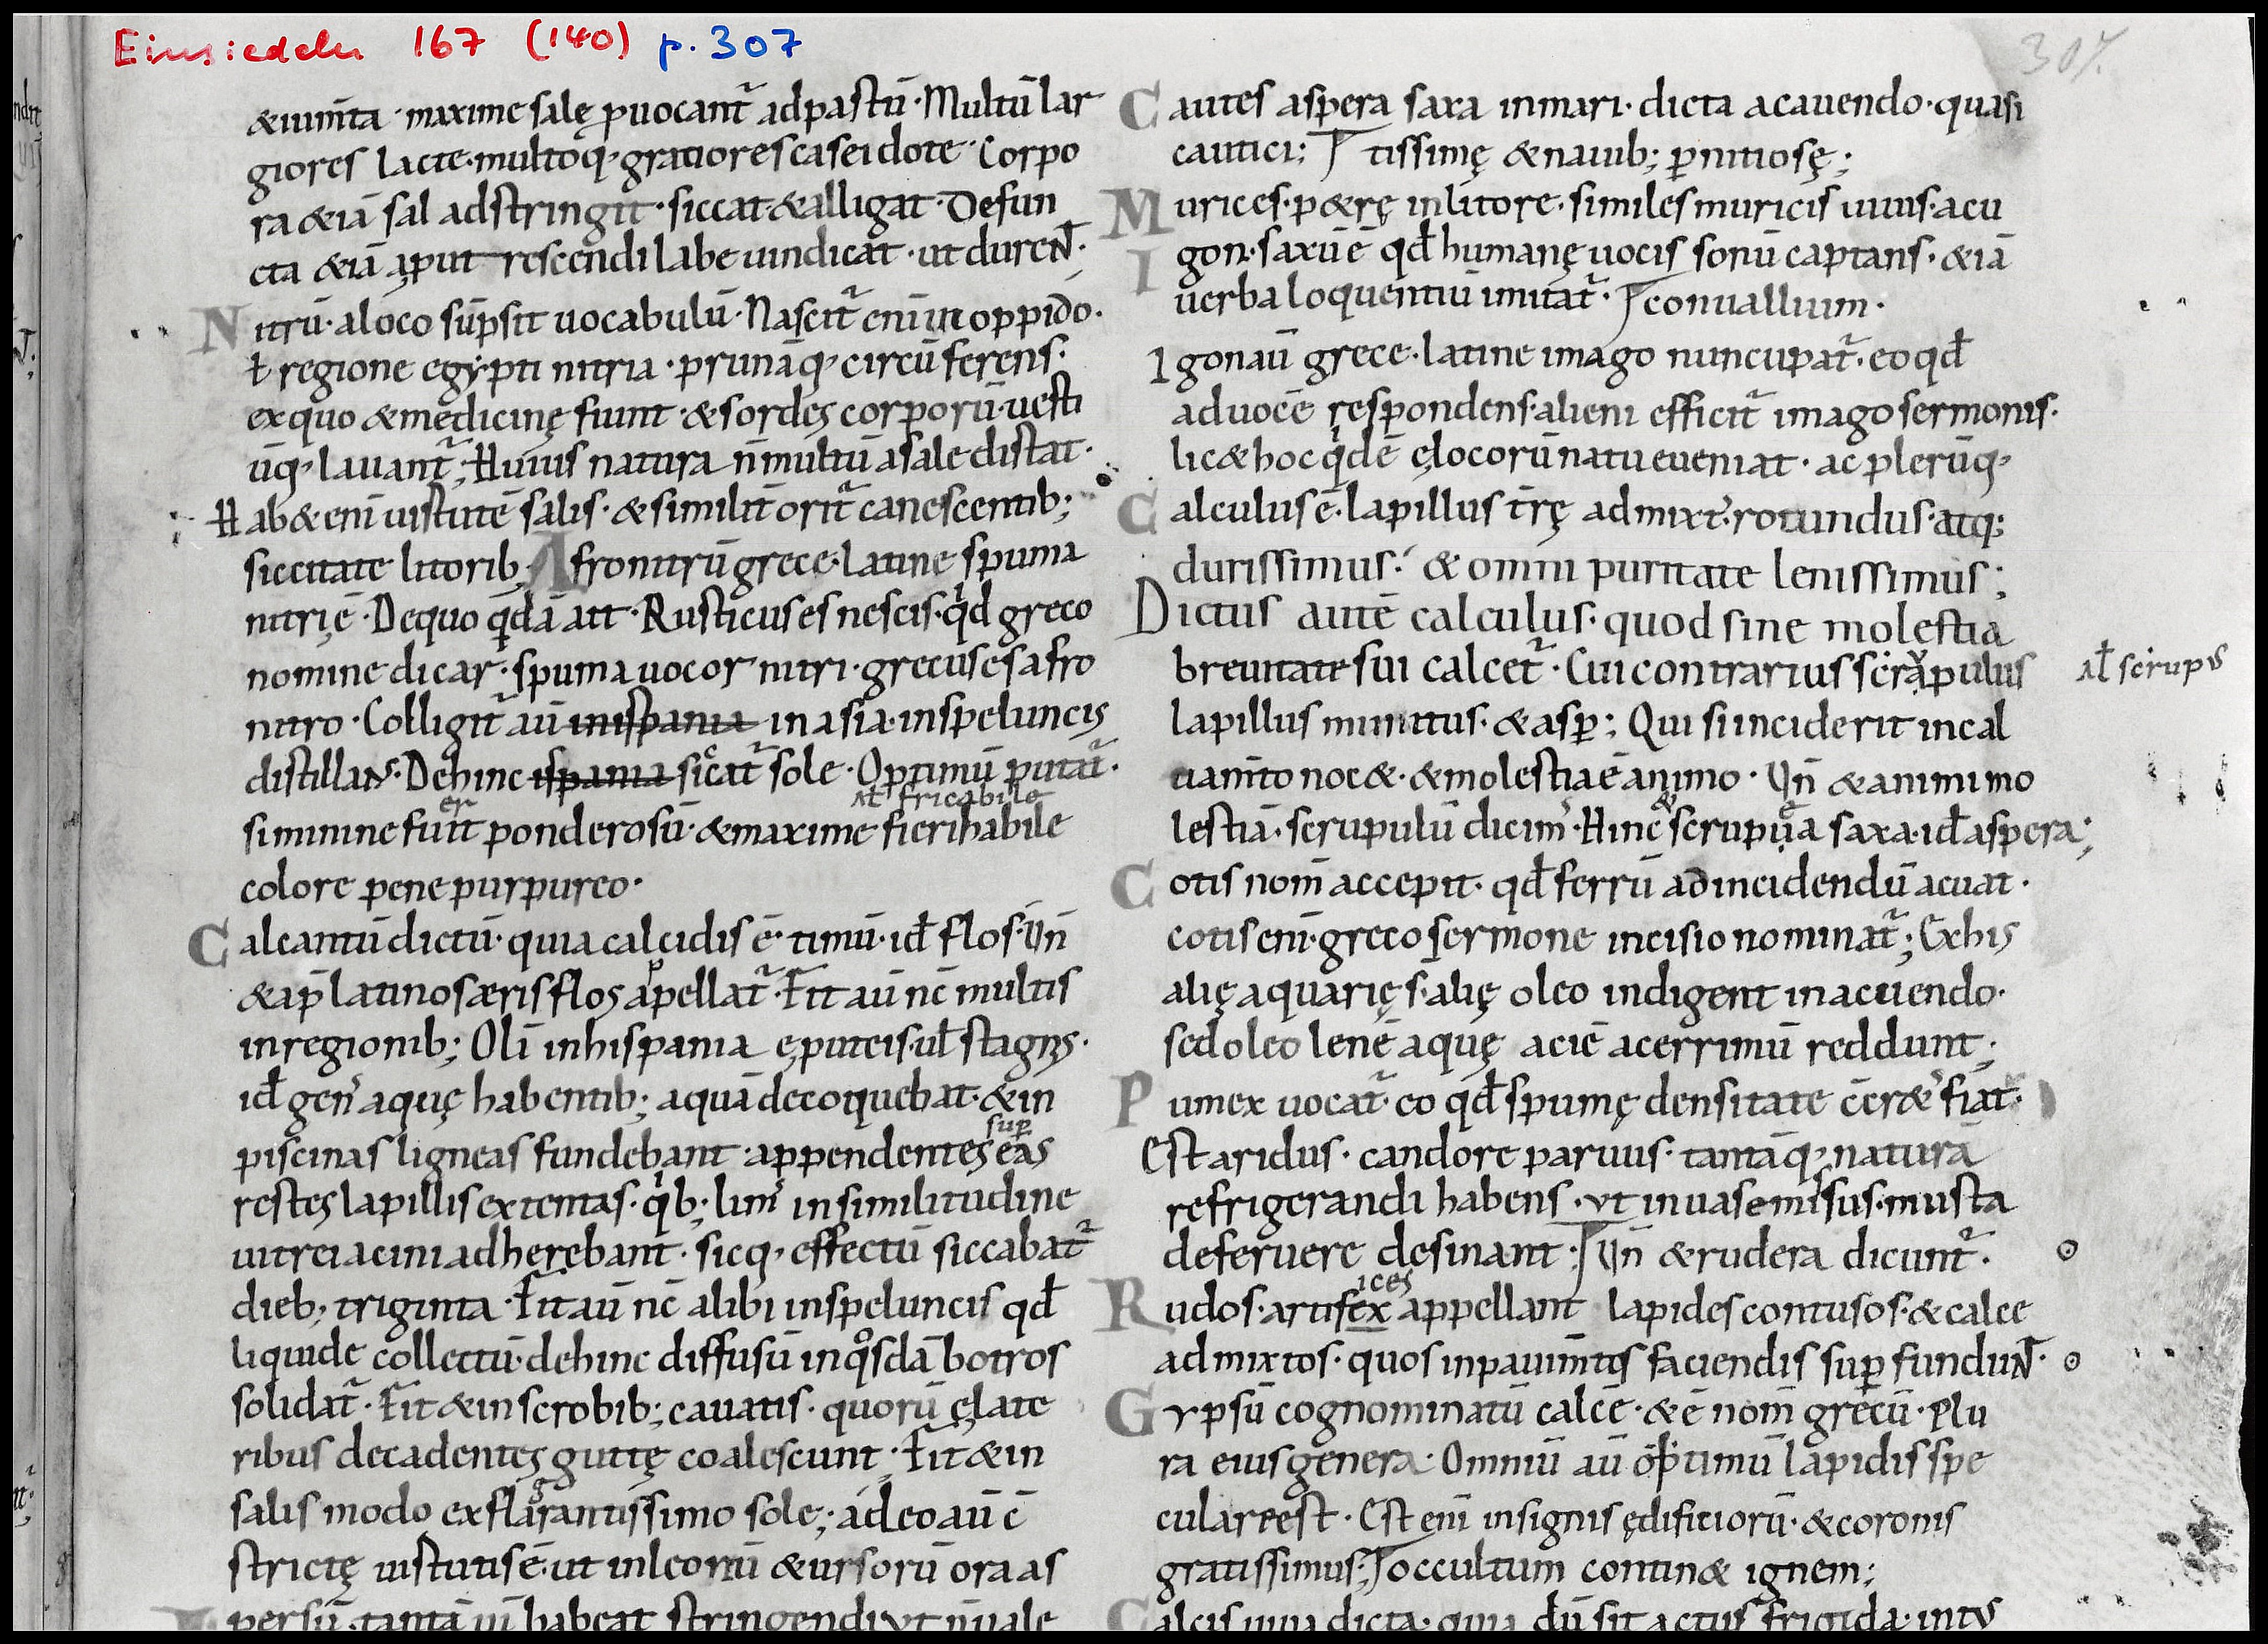 Einsiedeln 167 (140) p. 307
307.
&ium̄ta · maxime salę ꝓuocant᷑ ad pastū · Multū lar
giores lacte · multoq; gratiores casei dote · Corpo
ra &iā sal adstringit · siccat & alligat · Defun
cta &iā a putrescendi labe uindicat · ut durent᷑ ·
Nitrū · a loco sūpsit uocabulū · Nascit᷑ enī in oppido ·
ł regione egypti nitria · prunāq; circū ferens ·
ex quo & medicinę fiunt · & sordes corporū · uesti
ūq; lauant᷑ ; Huius natura n̄ multū a sale distat ·
Hab& enī uirtutē salis · & similit̄ orit᷑ canescentib;
siccitate litorib; Afronitrū grece · latine spuma
nitri ē · De quo quidā ait · Rusticus es nescis · quid greco
nomine dicar · spuma uocor nitri · grecus es afro
nitro · Colligit᷑ aū in ispania in asia · in speluncis
distillans · Dehinc ispania siccat᷑ sole · Optimū putat᷑ ·
at fricabile
si minime fuerit ponderosū · & maxime fierihabile
colore pene purpureo ·
Calcantū dictū · quia calcidis ē · timū · id flos · Un̄
& ap̄ latinos æris flos appellat᷑ · Fit aū nc̄ multis
in regionib; Olī in hispania ę puteis · ul stagnis ·
id gen' aquę habentib; aquā decoquebat · & in
sup
piscinas ligneas fundebant · appendentes eas
restes lapillis extentas · quib; lim' in similitudine
uitrei acini adherebant · sicq; effectū siccabat᷑
dieb; triginta · Fit aū nc̄ alibi in speluncis qđ
liquide collectū · dehinc diffusū in quosdā botros
solidat᷑ · Fit & in scrobib; cauatis · quorū ę late
ribus decadentes guttę coalescunt · Fit & in
salis modo ex flagrantissimo sole ; adeo aū c̄
strictę uirtutis ē · ut in leonū & ursorū ora as
persū · tantā uī habeat stringendi ut n̄ uale
Cautes aspera saxa in mari · dicta a cauendo · quasi
cautici ; tissimę & nauib; ꝑnitiosę ;
Murices · petrę in litore · similes muricis uiuis · acu
Igon · saxū ē qđ humanę uocis sonū captans · &iā
uerba loquentiū imitat᷑ · conuallium ·
Igon aū grece · latine imago nuncupat᷑ · eo qđ
ad uocē respondens · alieni efficit᷑ imago sermonis ·
lic& hoc quidē ę locorū natu eueniat · ac plerūq;
Calculus ē · lapillus tr̄ę admixt᷑ · rotundus · atq;
durissimus · & omni puritate lenissimus ;
Dictus autē calculus · quod sine molestia
breuitate sui calcet᷑ · Cui contrarius scrapulus
at scrupus
lapillus minutus · & asꝑ ; Qui si inciderit in cal
ciam̄to noc& · & molestia ē animo · Un̄ & animi mo
lestiā · scrupulū dicim' · Hinc & scrupea saxa · id aspera ;
Cotis nom̄ accepit · qđ ferrū ad incidendū acuat ·
cotis enī · greco sermone incisio nominat᷑ ; Ex his
alię aquarię s̄ · alię oleo indigent in acuendo ·
sed oleo lenē aquę aciē acerrimū reddunt ;
Pumex uocat᷑ · eo qđ spumę densitate c̄cræt' fiat ·
Est aridus · candore paruus · tantāq; naturā
refrigerandi habens · ut in uase misus · musta
deferuere desinant · Un̄ & rudera dicunt᷑ ·
ices
Rudos · artifex appellant lapides contusos · & calce
admixtos · quos in pauim̄tis faciendis suꝑ fundunt᷑ ·
Gypsū cognominatū calcē · & ē nom̄ grecū · Plu
ra eius genera · Omniū aū optimū lapidis spe
culare est · Est enī insignis ędificiorū · & coronis
gratissimus ; occultum contin& ignem ;
Calcis uiua dicta · quia dū sit actus frigida · intus